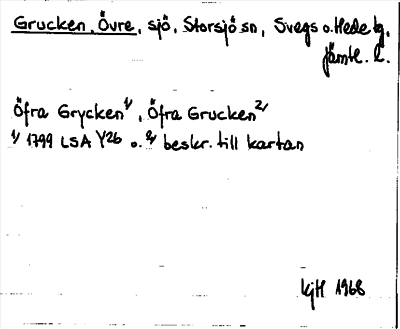 Grucken, Övre, sjö, Storsjö sn, Svegs o. Hede tg,
Jämtl. l.
Öfra Grycken 1/, Öfra Grucken 2/
1/ 1799 LSA Y26 o. 2/ beskr. till kartan
KjH 1968